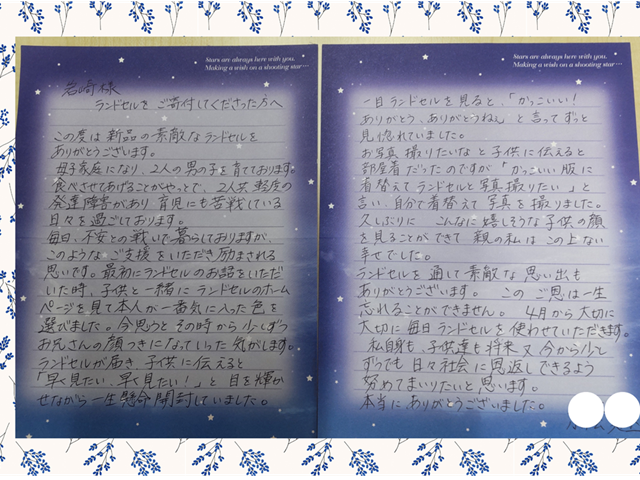 Stars are always here with you.
Making a wish on a shooting star…
岩崎様
ランドセルを ご寄付してくださった方へ
この度は 新品の素敵なランドセルを
ありがとうございます。
母子家庭になり、2人の男の子を育てております。
食べさせてあげることがやっとで、2人共 軽度の
発達障害があり 育児にも苦戦している
日々を過ごしております。
毎日、不安との戦いで暮らしておりますが、
このような ご支援をいただき励まされる
思いです。最初にランドセルのお話をいただ
いた時、子供と一緒に ランドセルのホーム
ページを見て本人が一番気に入った色を
選びました。今思うと その時から 少しずつ
お兄さんの顔つきになっていった気がします。
ランドセルが届き 子供に伝えると
「早く見たい、早く見たい!」と 目を輝か
せながら一生懸命開封していました。
Stars are always here with you.
Making a wish on a shooting star…
一日ランドセルを見ると、「かっこいい!
ありがとう、ありがとうねぇ」と言ってずっと
見惚れていました。
お写真撮りたいなと子供に伝えると
部屋着だったのですが「かっこいい服に
着替えてランドセルと写真撮りたい」と
言い、自分で着替えて写真を撮りました。
久しぶりに こんなに嬉しそうな子供の顔
を見ることができて 親の私は この上ない
幸せでした。
ランドセルを通して素敵な思い出も
ありがとうございます。 このご恩は一生
忘れることができません。 4月から大切に
大切に毎日ランドセルを使わせていただきます。
私自身も、子供達も将来 又 今から少し
ずつでも 日々社会に恩返しできるよう
努めてまいりたいと思います。
本当に ありがとうございました。